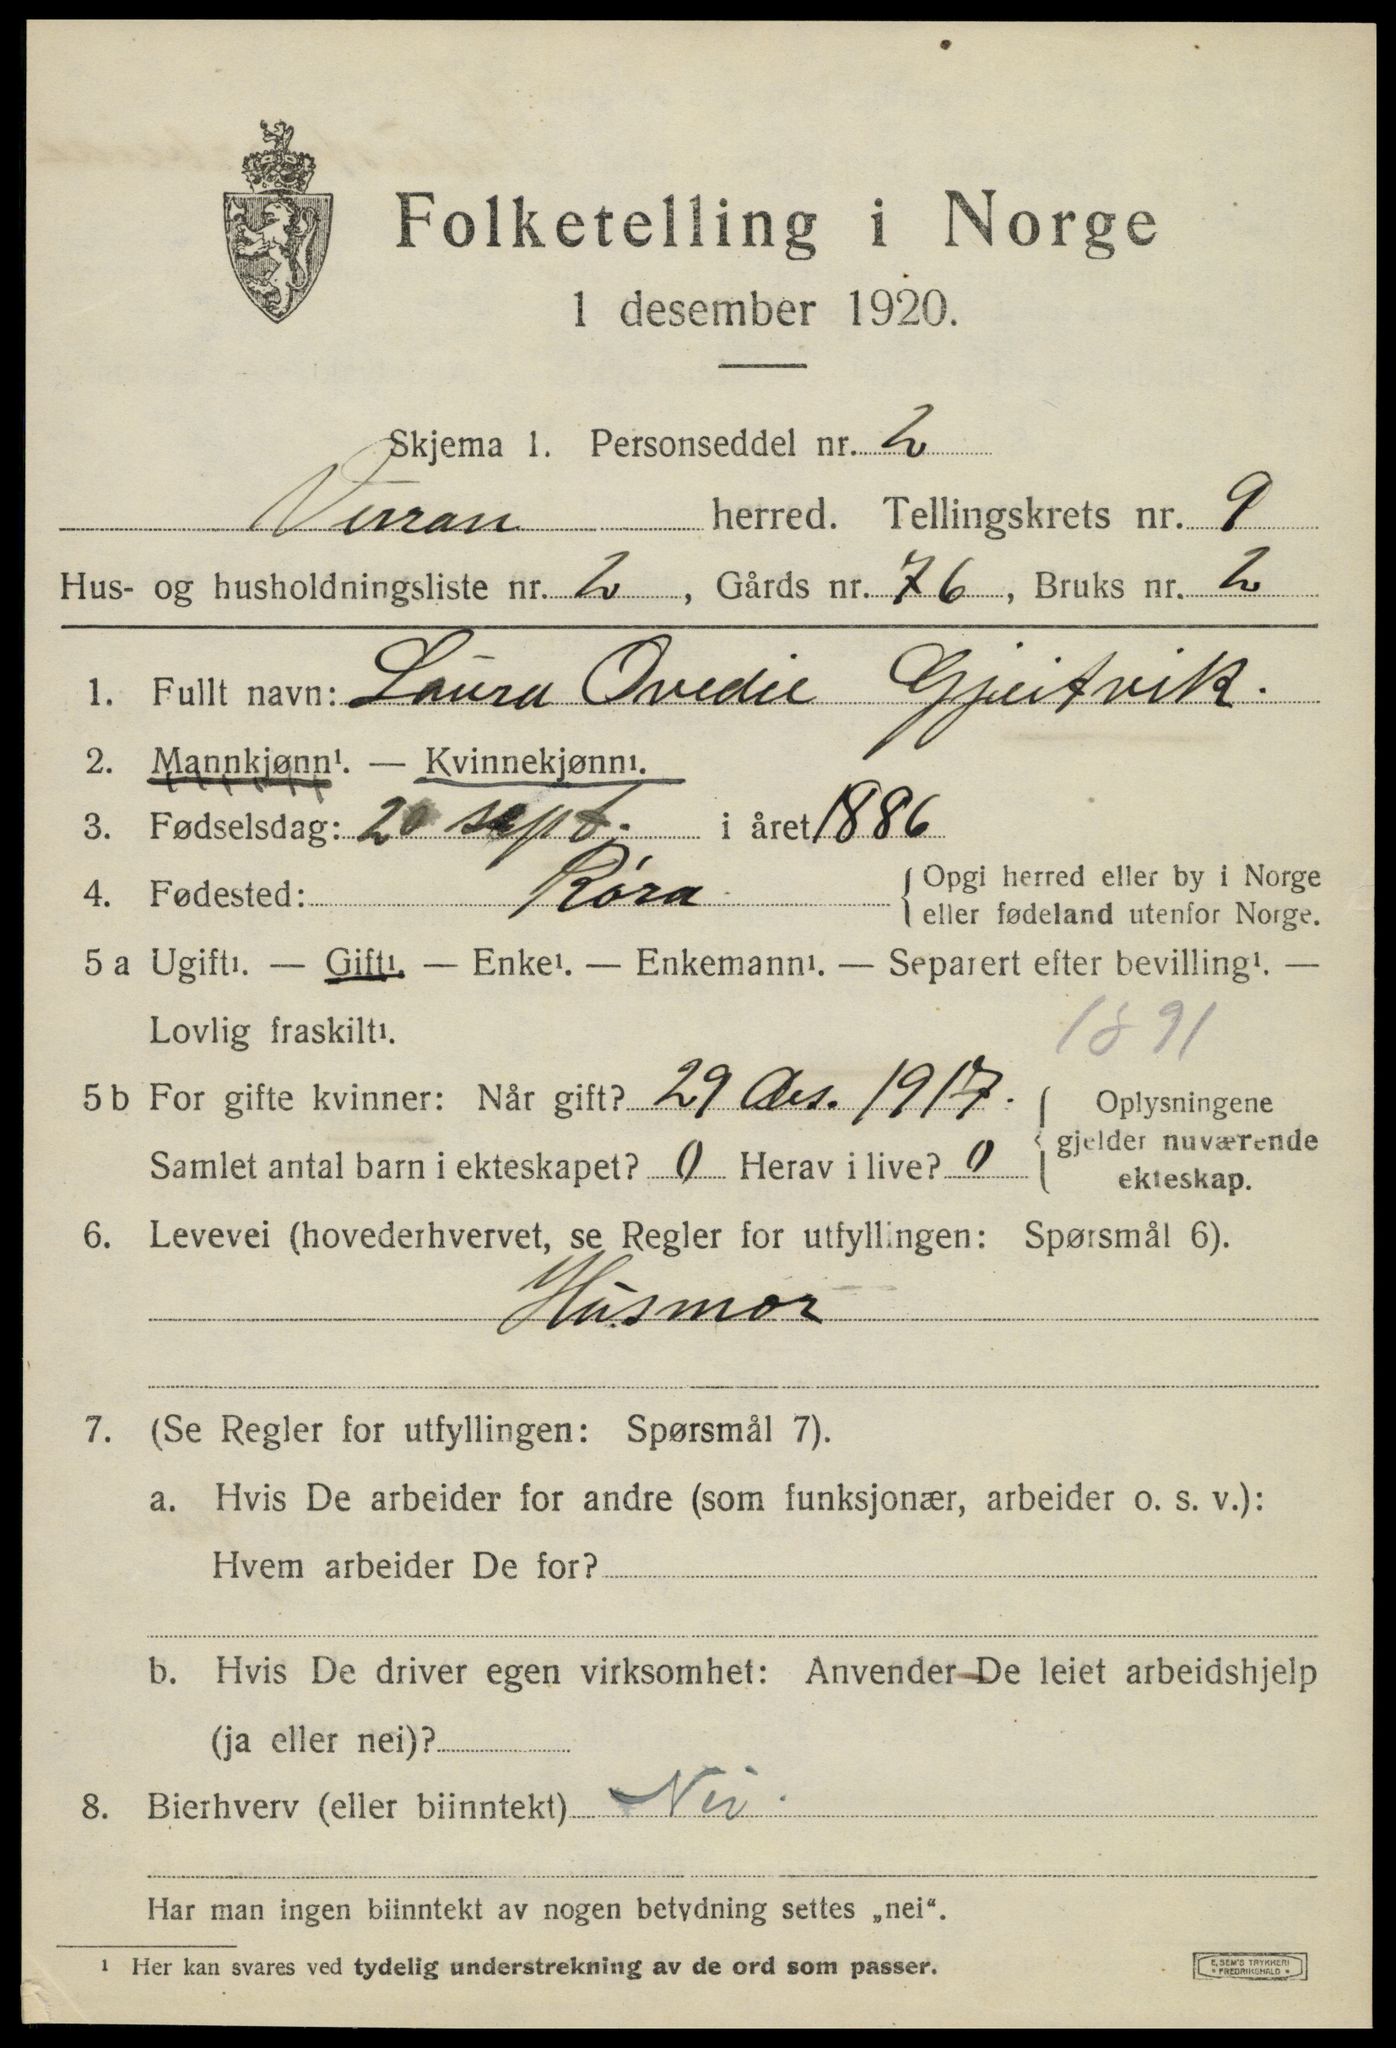 Folketelling i Norge
1 desember 1920.
Skjema 1. Personseddel nr. 2
Verran herred. Tellingskrets nr. 9
Hus- og husholdningsliste nr. 2, Gårds nr. 76, Bruks nr. 2
1. Fullt navn: Laura Ovedie Gjeitvik.
2. Mannkjønn¹. — Kvinnekjønn¹.
3. Fødselsdag: 20 sept. i året 1886
4. Fødested: Røra { Opgi herred eller by i Norge
eller fødeland utenfor Norge.
5 a Ugift¹. — Gift¹. — Enke¹. — Enkemann¹. — Separert efter bevilling¹. —
Lovlig fraskilt¹.
1891
5 b For gifte kvinner: Når gift? 29 Des. 1917. { Oplysningene
gjelder nuværende
Samlet antal barn i ekteskapet? 0 Herav i live? 0
ekteskap.
6. Levevei (hovederhvervet, se Regler for utfyllingen: Spørsmål 6).
Husmor
7. (Se Regler for utfyllingen: Spørsmål 7).
a. Hvis De arbeider for andre (som funksjonær, arbeider o. s. v.):
Hvem arbeider De for?
b. Hvis De driver egen virksomhet: Anvender De leiet arbeidshjelp
(ja eller nei)?
8. Bierhverv (eller biinntekt) Nei.
Har man ingen biinntekt av nogen betydning settes „nei“.
¹ Her kan svares ved tydelig understrekning av de ord som passer.
E. SEM'S TRYKKERI
* FREDRIKSHALD *